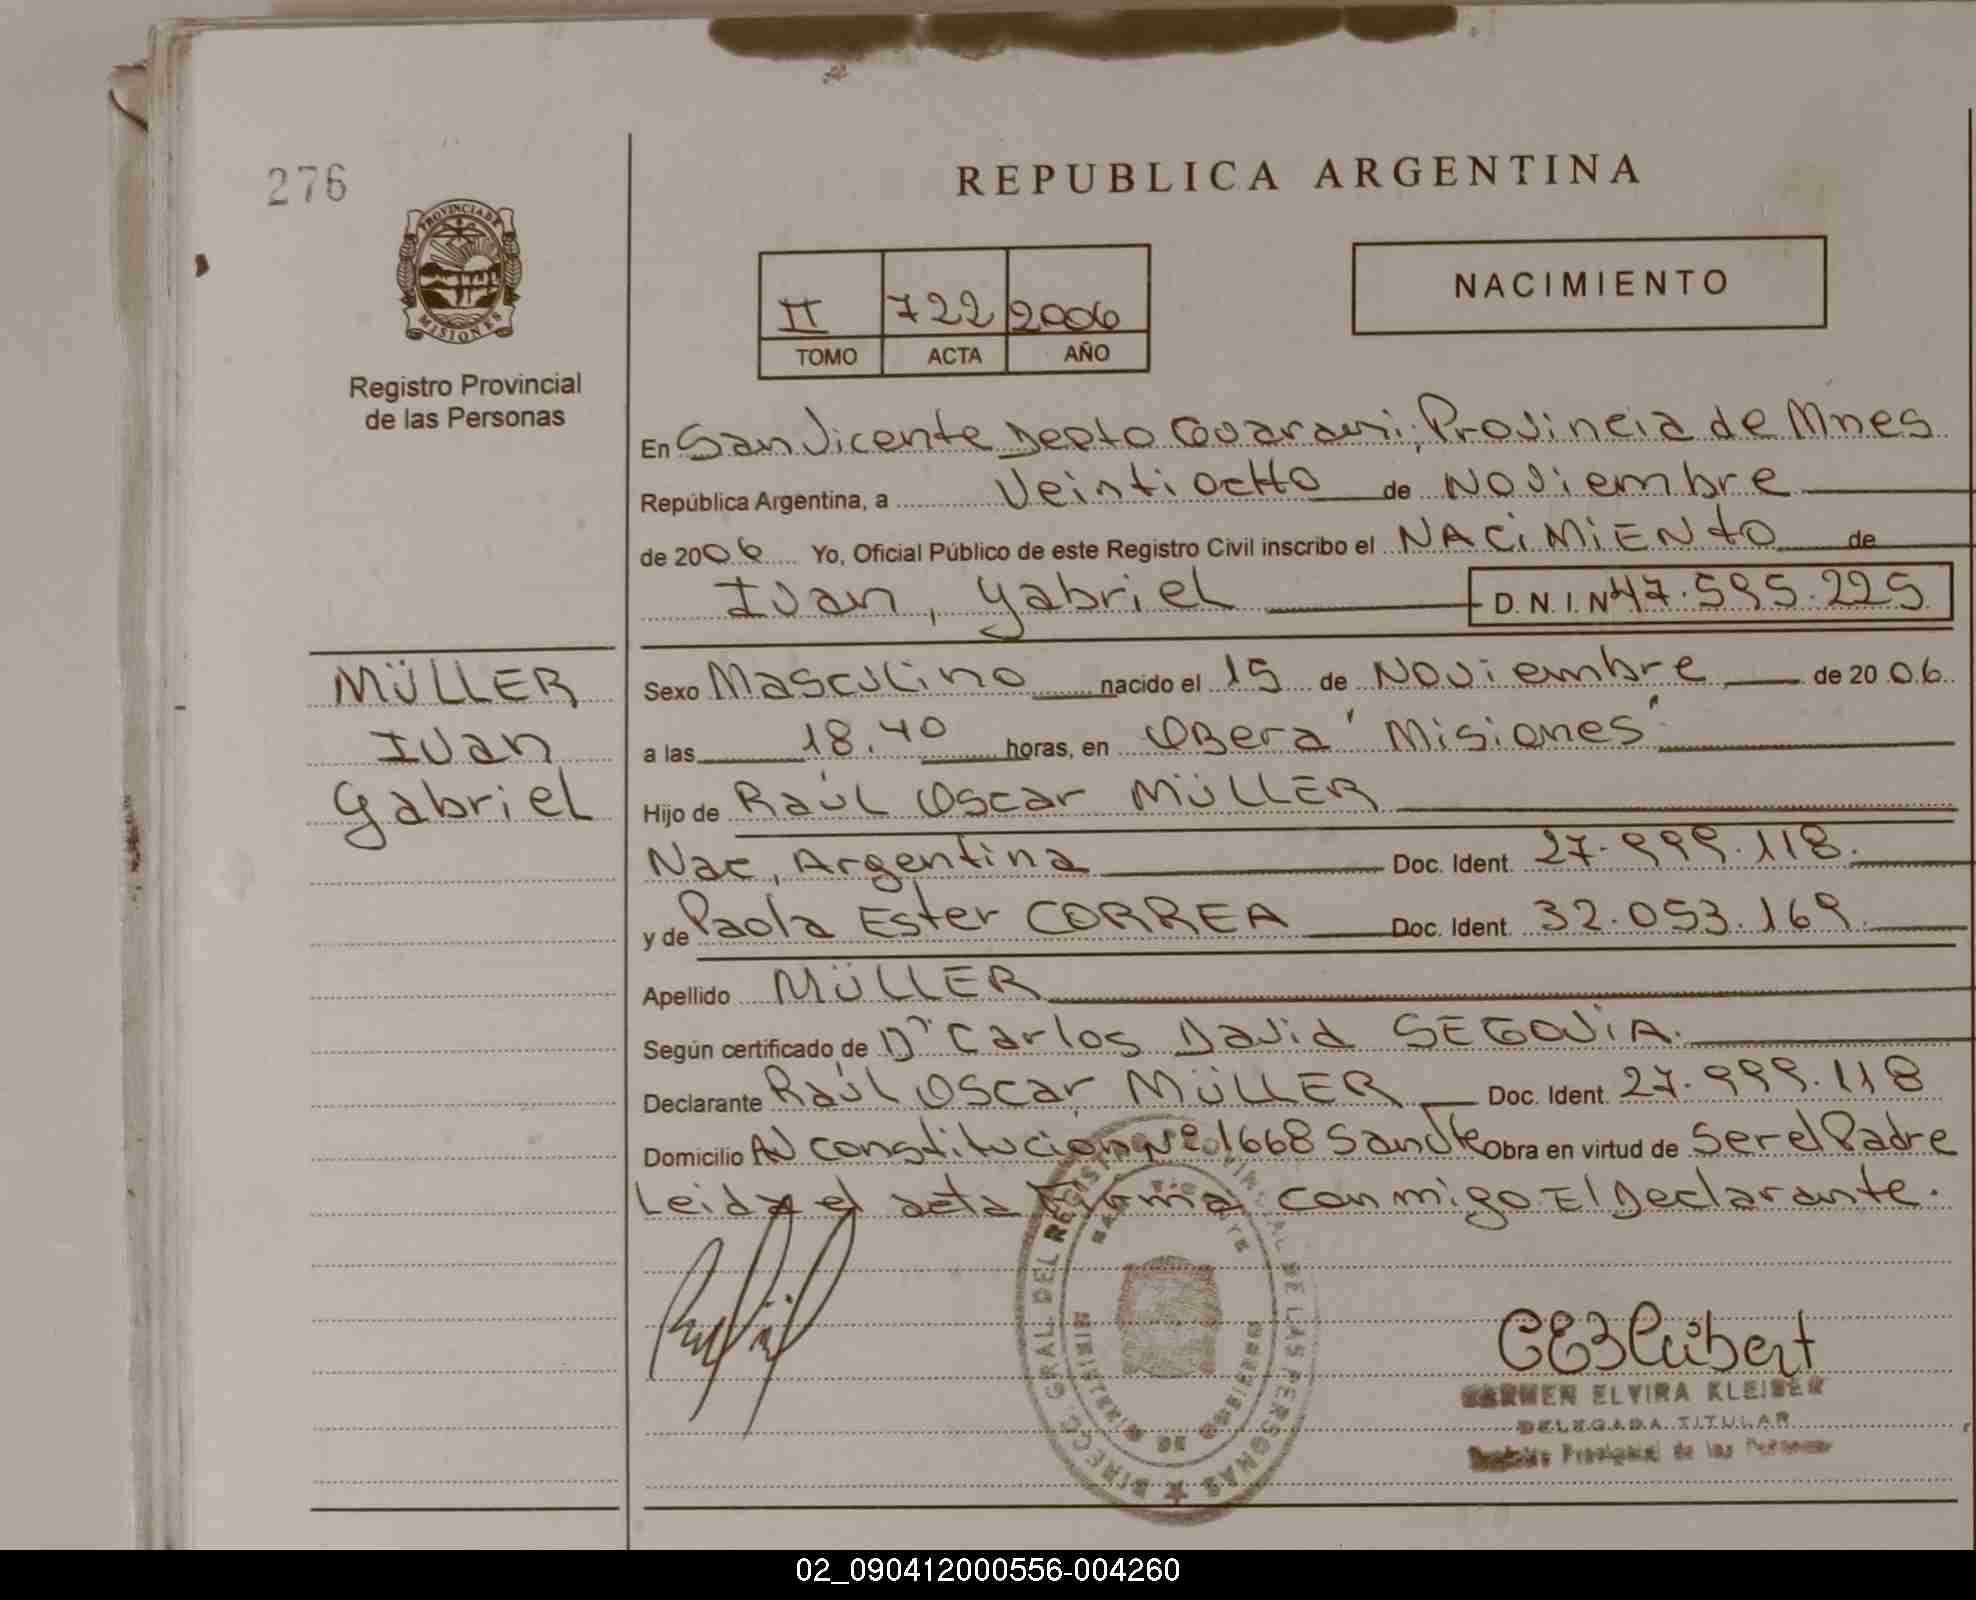 276
PROVINCIA DE
MISIONES
Registro Provincial
de las Personas
REPUBLICA ARGENTINA
II 722 2006
TOMO ACTA AÑO
NACIMIENTO
En San Vicente Depto Guarani, Provincia de Mnes
República Argentina, a Veintiocho de Noviembre
de 2006 Yo, Oficial Público de este Registro Civil inscribo el NACIMIENTO de
Ivan, Gabriel D.N.I.Nº 47.595.225
MÜLLER
Ivan
Gabriel
Sexo Masculino nacido el 15 de Noviembre de 2006
a las 18.40 horas, en Obera 'Misiones'
Hijo de Raúl Oscar MÜLLER
Nac, Argentina Doc. Ident. 27.999.118.
y de Paola Ester CORREA Doc. Ident. 32.053.169.
Apellido MÜLLER
Según certificado de Dr Carlos David SEGOVIA.
Declarante Raúl Oscar MÜLLER Doc. Ident. 27.999.118
Domicilio AV Constitución Nº 1668 San Vte Obra en virtud de Ser el Padre
Leida el acta Firma conmigo El Declarante.
DIRECC. GRAL. DEL REGISTRO PROVINCIAL DE LAS PERSONAS
SAN VICENTE
MINISTERIO DE GOBIERNO
CARMEN ELVIRA KLEIBER
DELEGADA TITULAR
Provincial de las Personas
02_090412000556-004260